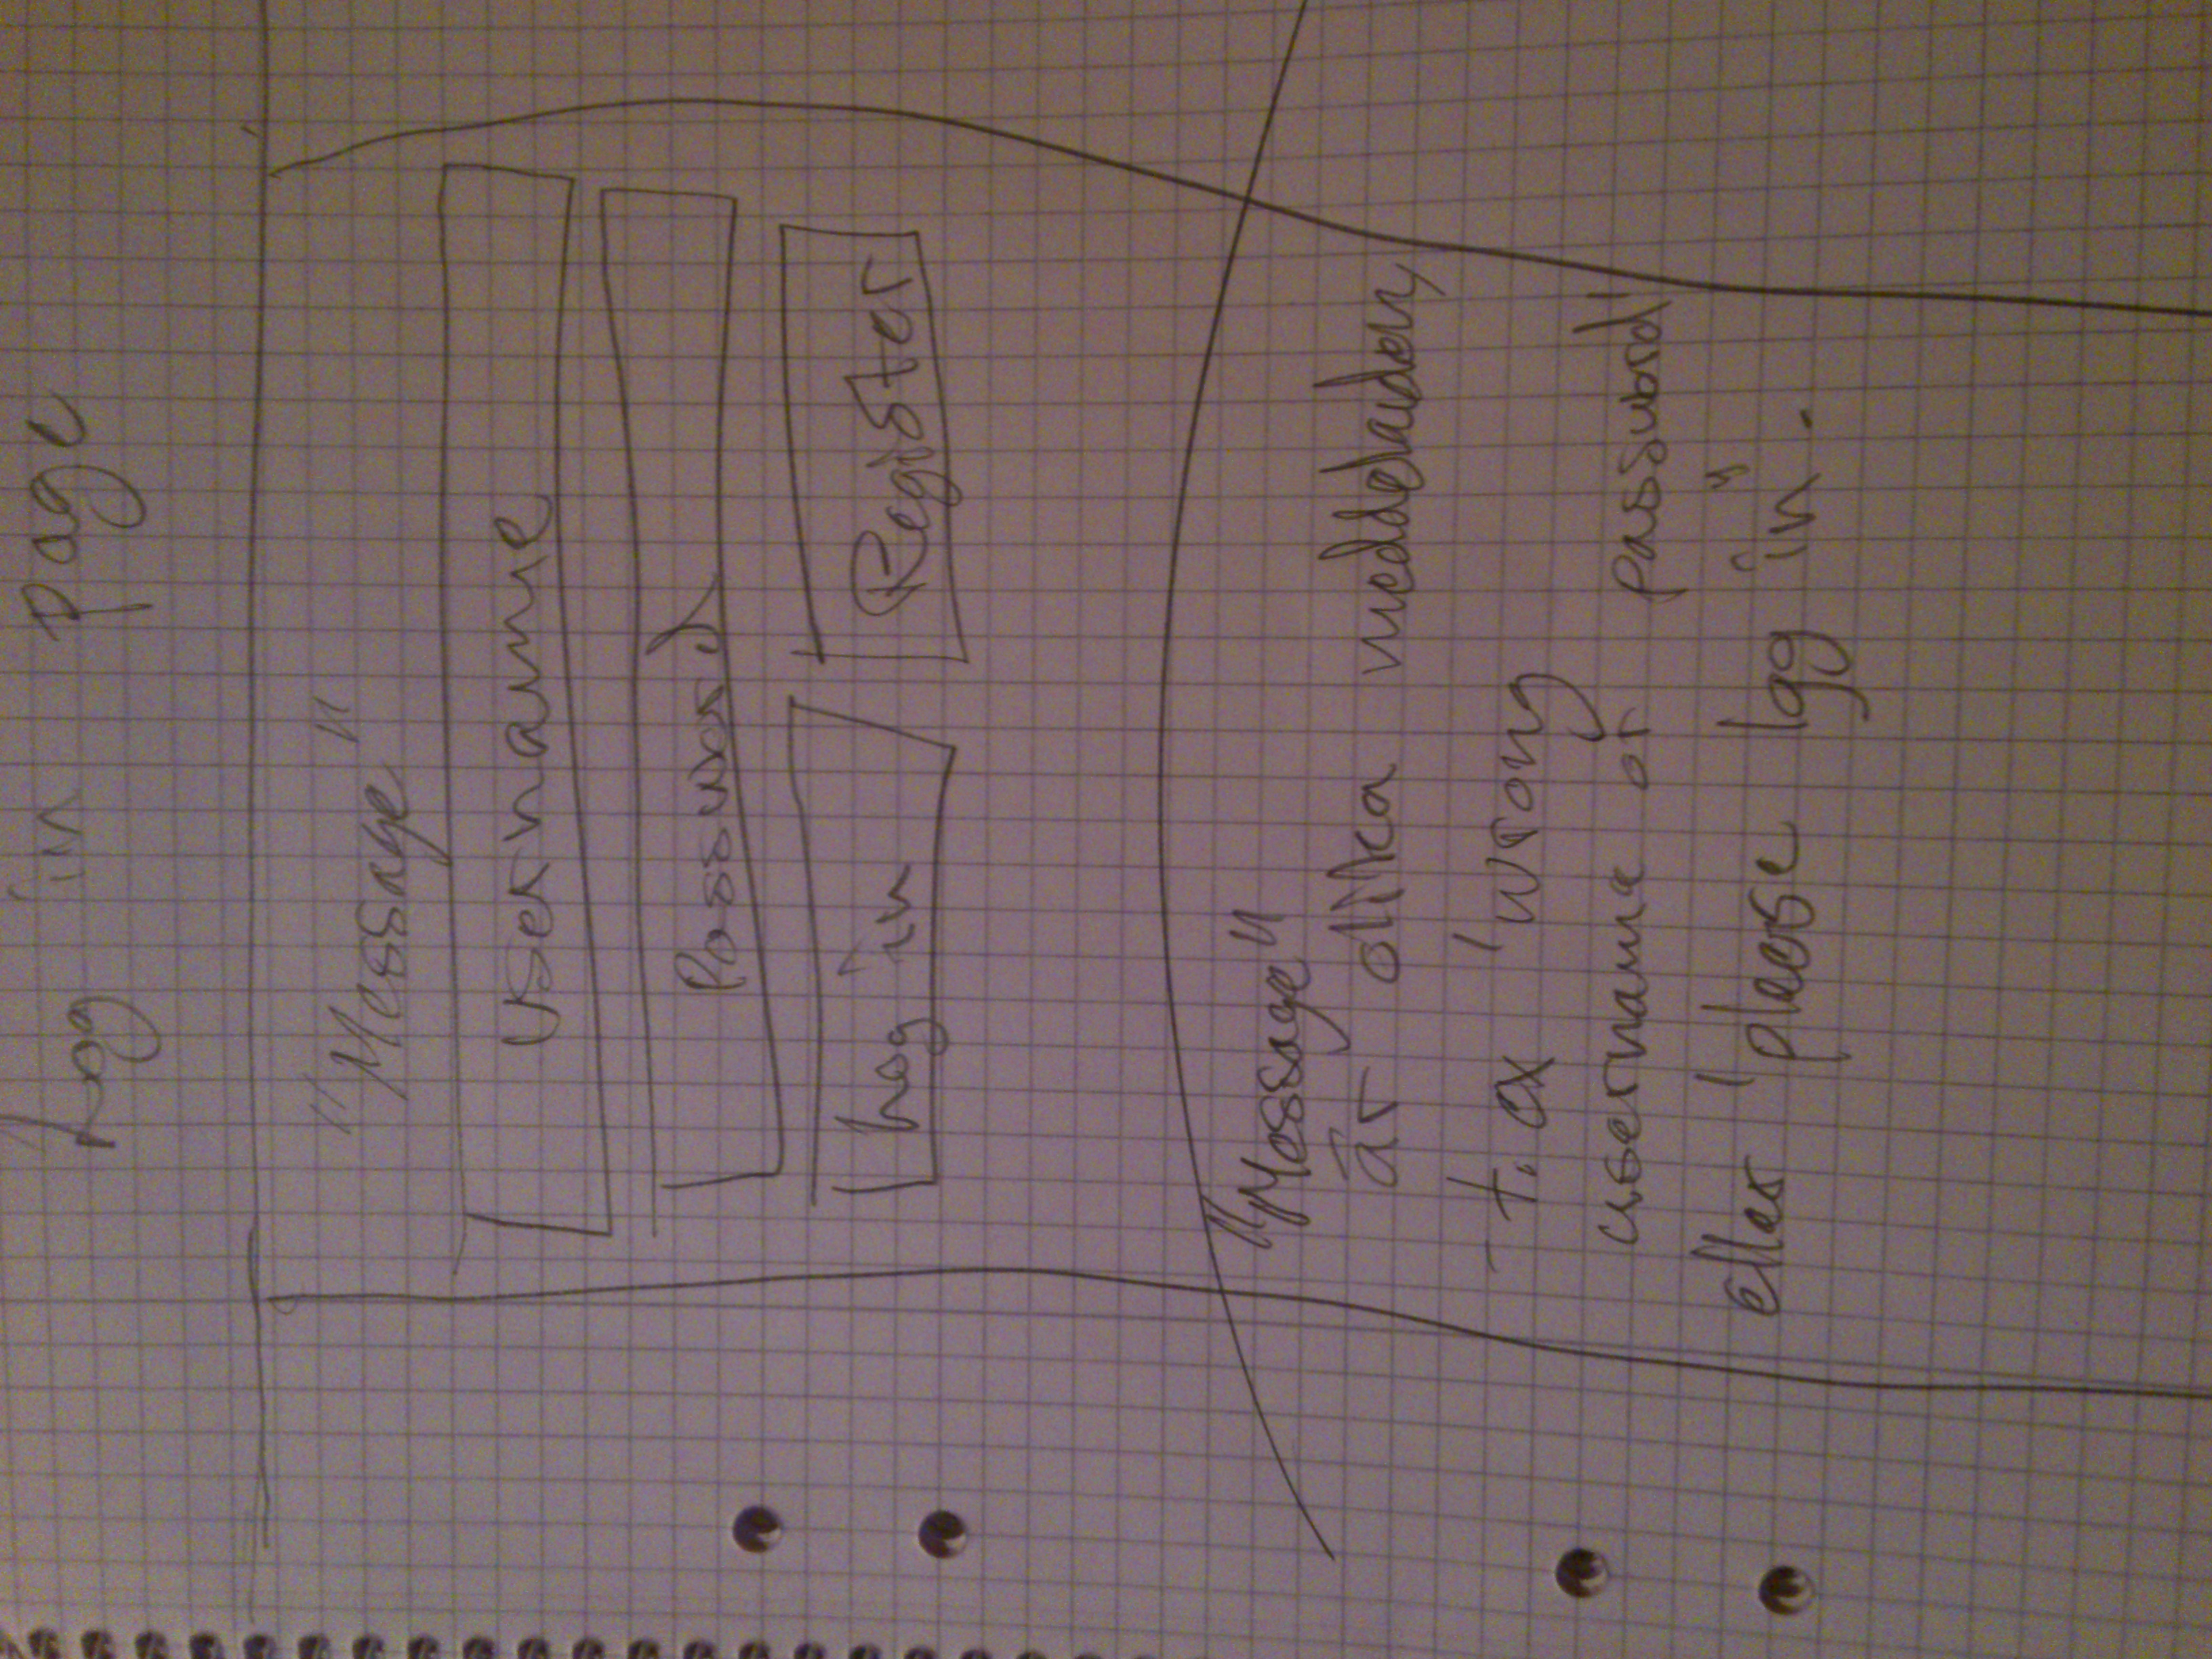 Log in page
"Message"
Username
Password
Log in Register
"Message"
är olika meddelanden,
t.ex 'wrong
username or password'
eller 'please log in".